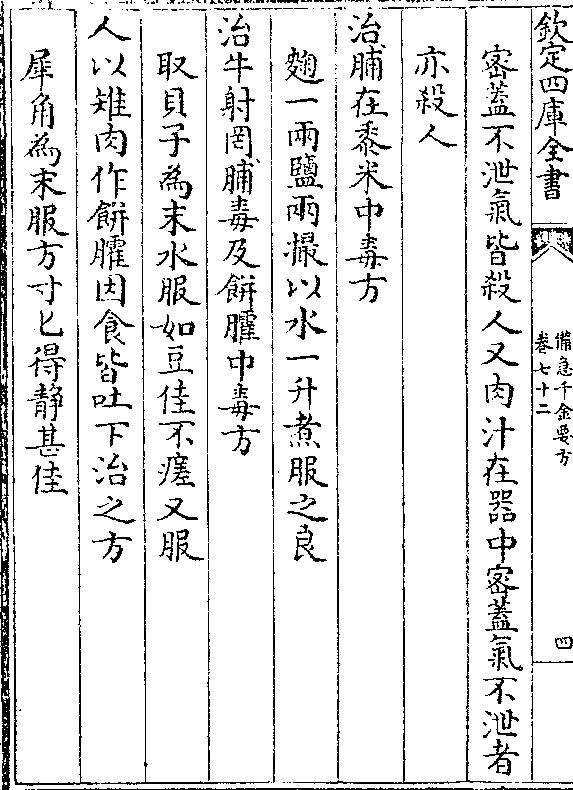 欽定四庫全書
備急千金要方
卷七十二
四
密蓋不泄氣皆殺人又肉汁在器中密蓋氣不泄者
亦殺人
治脯在黍米中毒方
麴一兩鹽兩撮以水一升煮服之良
治牛射罔脯毒及餅臛中毒方
取貝子為末水服如豆佳不瘥又服
人以雉肉作餅臛因食皆吐下治之方
犀角為末服方寸匕得静甚佳